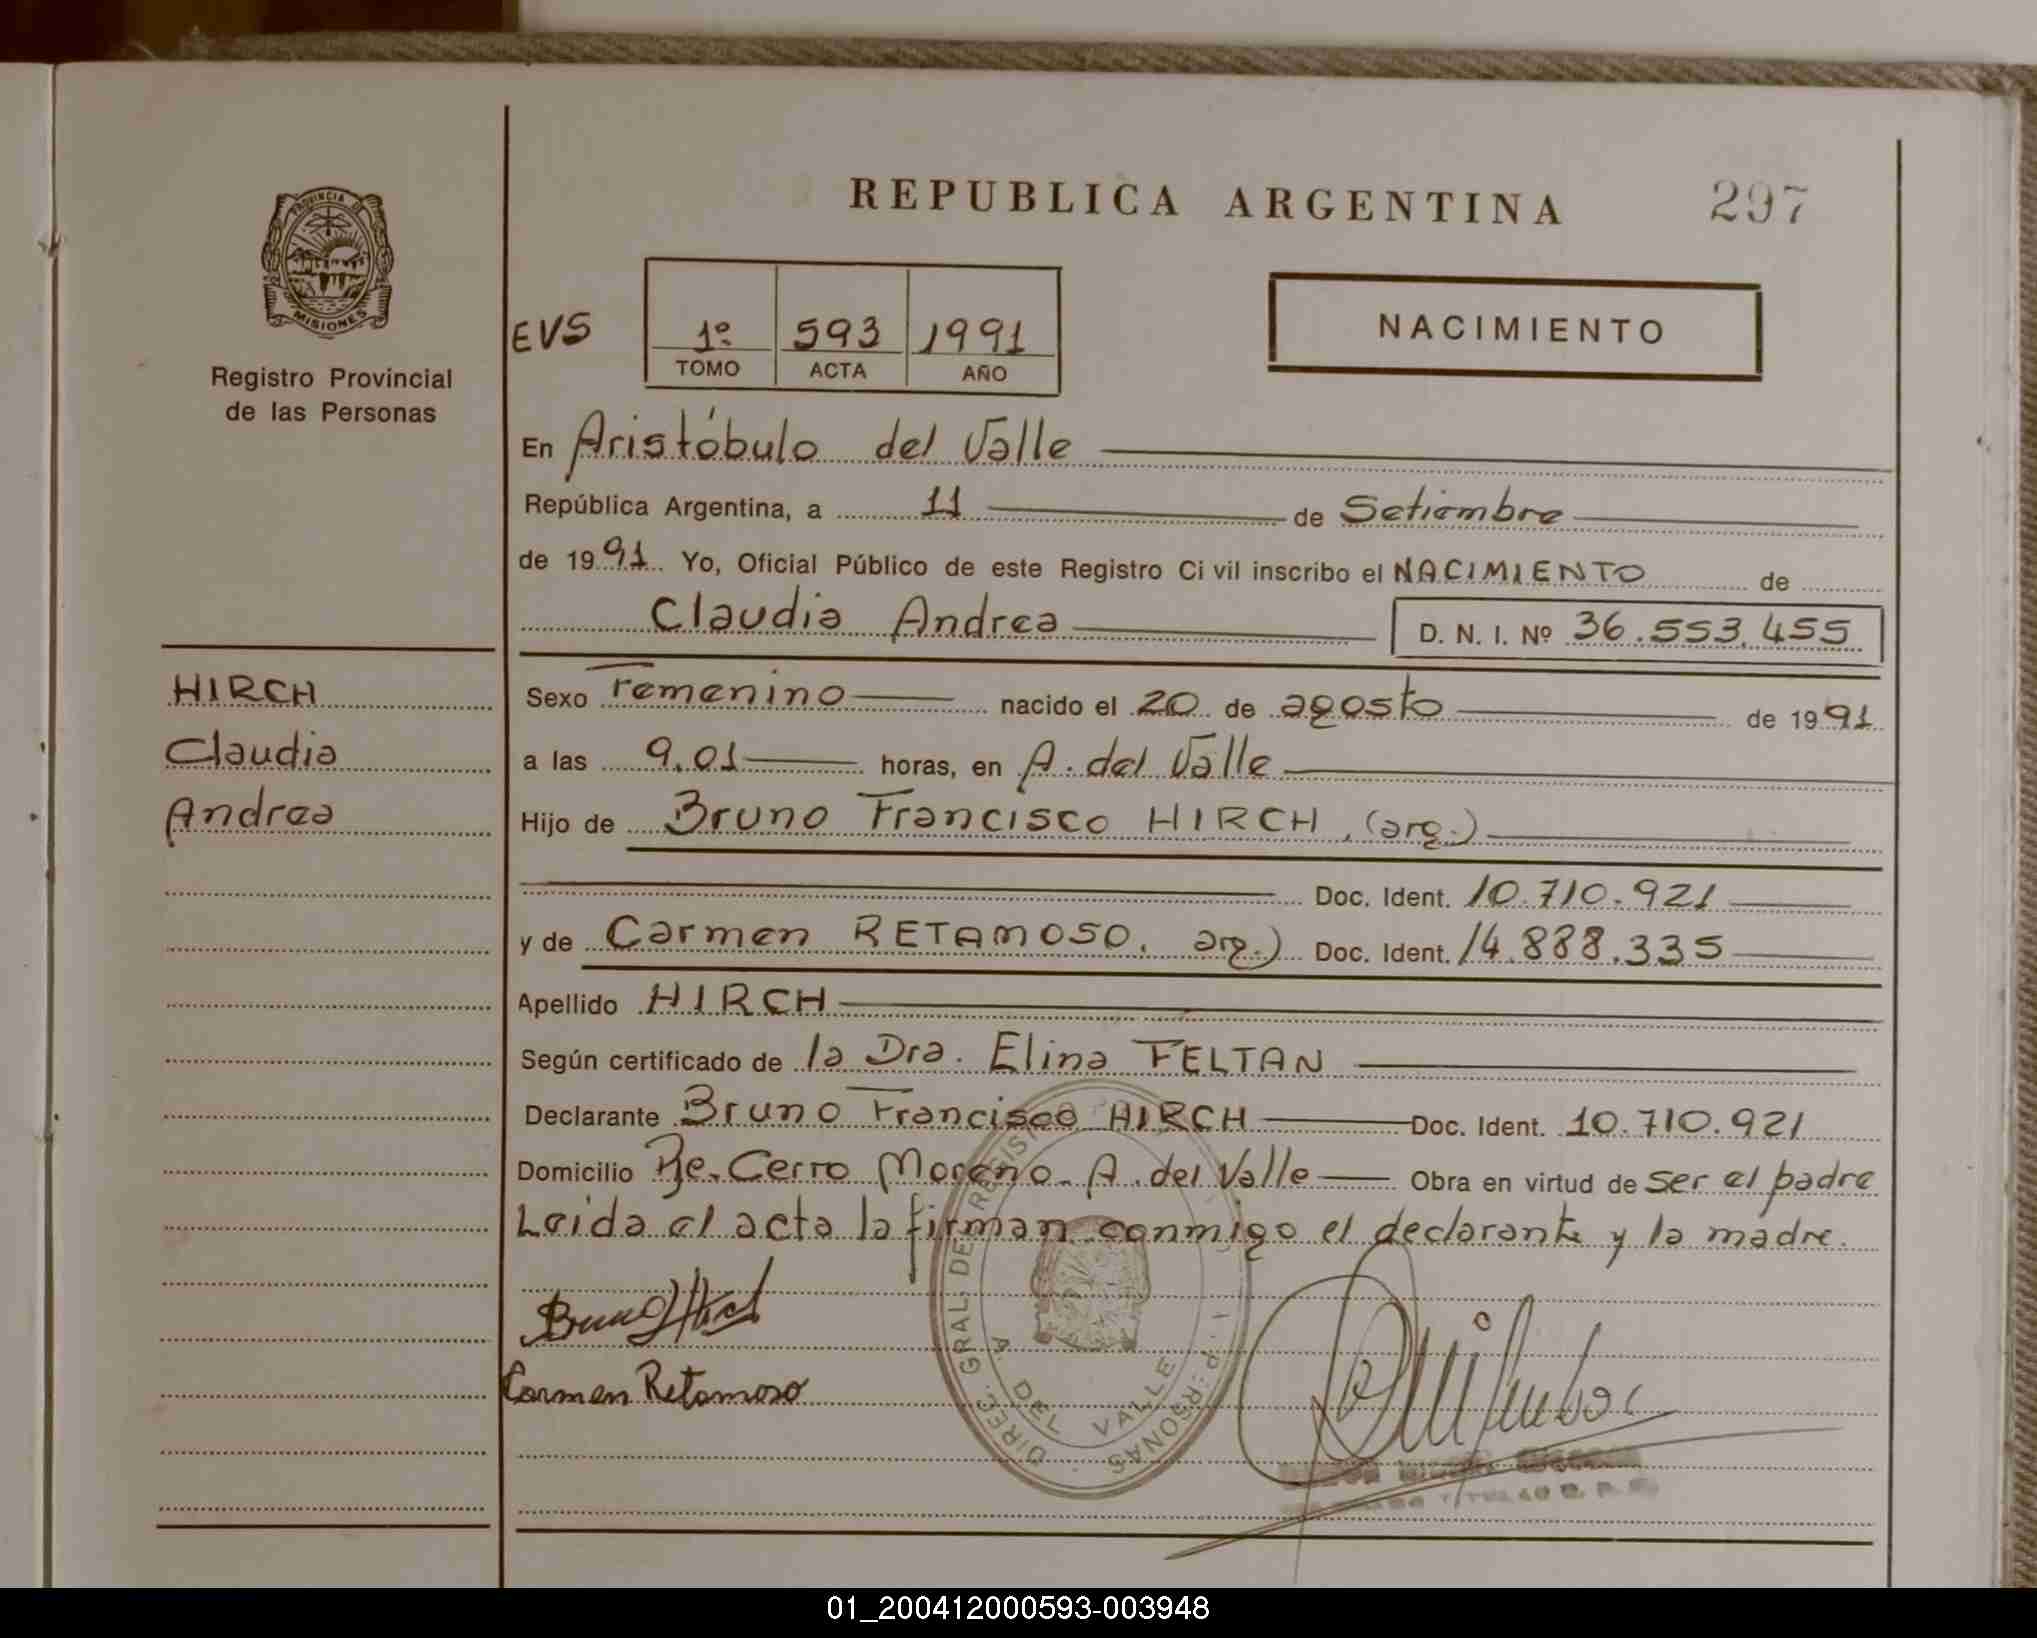 REPUBLICA ARGENTINA
297
PROVINCIA DE
MISIONES
Registro Provincial
de las Personas
EVS
1º 593 1991
TOMO ACTA AÑO
NACIMIENTO
En Aristóbulo del Valle
República Argentina, a 11 de Setiembre
de 1991 Yo, Oficial Público de este Registro Ci vil inscribo el NACIMIENTO de
Claudia Andrea D. N. I. Nº 36.553.455
HIRCH
Claudia
Andrea
Sexo Femenino nacido el 20 de agosto de 1991
a las 9.01 horas, en A. del Valle
Hijo de Bruno Francisco HIRCH, (arg.)
Doc. Ident. 10.710.921
y de Carmen RETAMOSO, arg.) Doc. Ident. 14.888.335
Apellido HIRCH
Según certificado de la Dra. Elina FELTAN
Declarante Bruno Francisco HIRCH Doc. Ident. 10.710.921
Domicilio Pje. Cerro Moreno - A. del Valle Obra en virtud de ser el padre
Leida el acta la firman conmigo el declarante y la madre.
Bruno Hirch
Carmen Retamoso
DIREC. GRAL. DE REGISTRO
PERSONAS
A. DEL VALLE
01_200412000593-003948